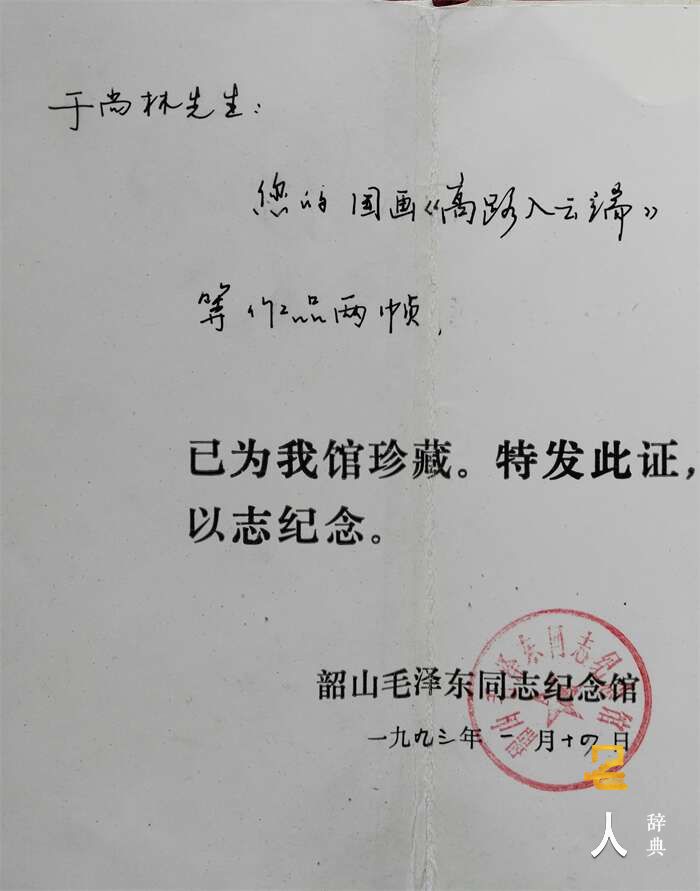 于尚林先生：
您的国画《高路入云端》
等作品两帧，
已为我馆珍藏。特发此证，
以志纪念。
韶山毛泽东同志纪念馆
一九九三年一月十四日
韶山毛泽东同志纪念馆
名人
辞典